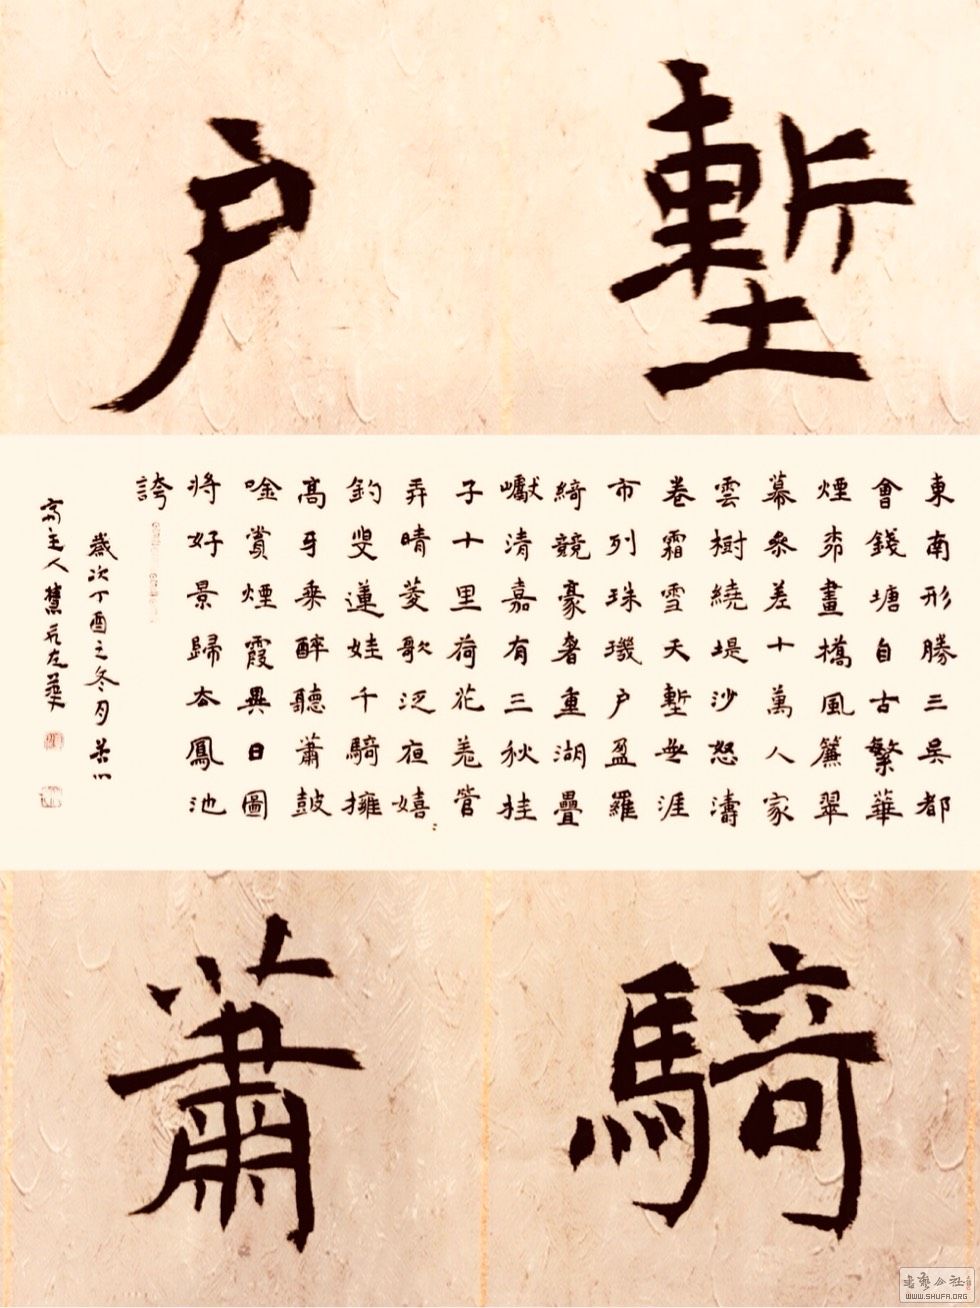 塹
户
東南形勝三吳都
會錢塘自古繁華
煙柳畫橋風簾翠
幕參差十萬人家
雲樹繞堤沙怒濤
卷霜雪天塹無涯
市列珠璣户盈羅
綺競豪奢重湖疊
巘清嘉有三秋桂
子十里荷花羌管
弄晴菱歌泛夜嬉
釣叟蓮娃千騎擁
高牙乘醉聽蕭鼓
唫賞煙霞異日圖
將好景歸去鳳池
誇
歲次丁酉之冬月
主人
騎
蕭
書藝公社
WWW.SHUFA.ORG